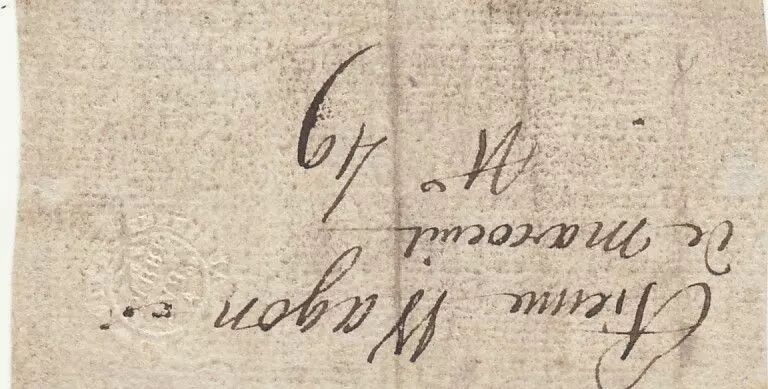 Etienne Wagon
de maroeuil
N° 49